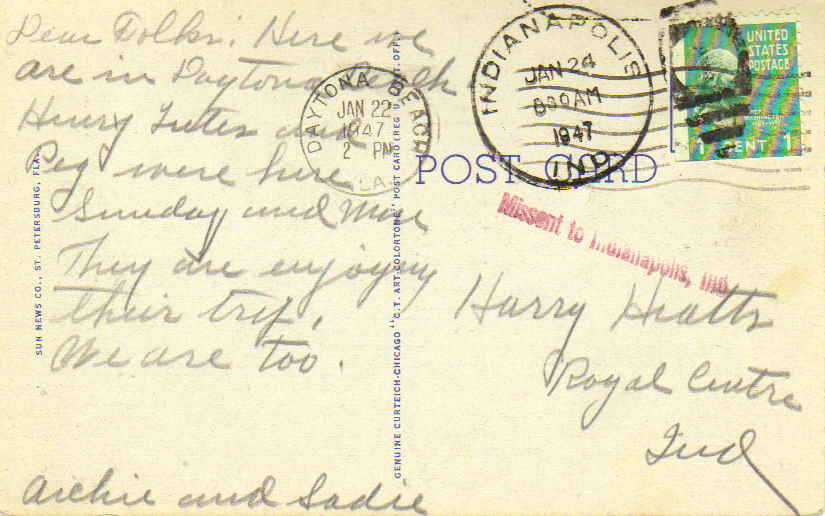 Dear Folks: Here we
are in Daytona Beach
Henry and
Peg were here
Sunday and Mon
They are enjoying
their trip,
We are too.
Archie and Sadie
SUN NEWS CO., ST. PETERSBURG, FLA.
GENUINE CURTEICH-CHICAGO "C.T. ART-COLORTONE" POST CARD (REG. U.S. PAT. OFF.)
DAYTONA BEACH
JAN 22
1947
2 PM
FLA.
INDIANAPOLIS
JAN 24
830AM
1947
IND.
UNITED
STATES
POSTAGE
WASHINGTON
1 CENT 1
POST CARD
Missent to Indianapolis, Ind.
Harry Hiatts
Royal Centre
Ind